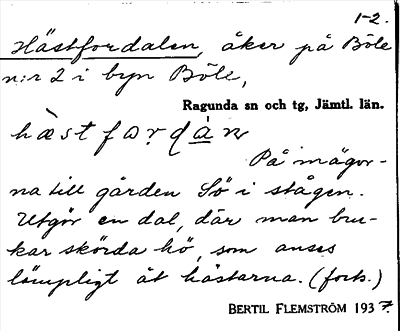 1-2.
Hästfordalen, åker på Böle
n:r 2 i byn Böle,
Ragunda sn och tg, Jämtl. län.
På mägor-
na till gården Sö i stågen.
Utgör en dal, där man bru-
kar skörda hö, som anses
lämpligt åt hästarna. (forts.)
BERTIL FLEMSTRÖM 1937.